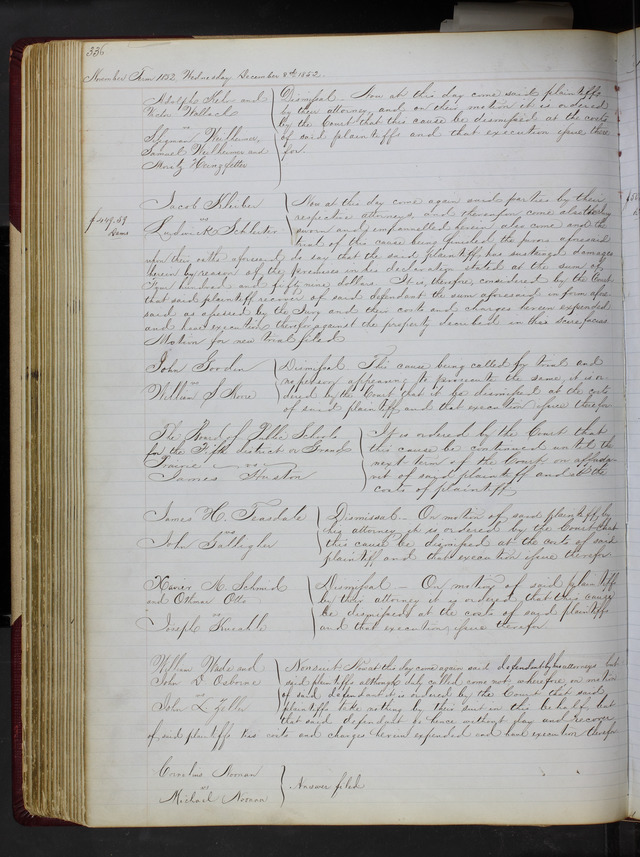 336
November Term 1852, Wednesday December 8th 1852.
Adolph Kehr and
Victor Wallach
vs
Sigman Weilheimer,
Samuel Weilheimer and
Moritz
Dismissal - Now at this day come said plaintiffs
by their attorney and on their motion it is ordered
by the Court that this cause be dismissed at the costs
of said plaintiffs and that execution issue there
for.
$449.43
Jacob
vs
Ludwick
Now at this day come again said parties by their
respective attorneys, and thereupon come also the jury
sworn and empannelled herein also come and the
trial of this cause being the jurors aforesaid
upon their oaths aforesaid do say that the said plaintiff has sustained damages
herein by reason of the premises in his declaration stated at the sum of
Four hundred and forty nine dollars. It is, therefore, considered by the Court
that said plaintiff recover of said defendant the sum aforesaid in form afore
said as assessed by the Jury and their costs and charges herein expended
and have execution therefor against the property described in this Scire facias
Motion for new trial filed
John Gordon
vs
William S
Dismissal This cause being called for trial and
no person appearing to prosecute the same, it is or-
dered by the Court that it be dismissed at the costs
of said plaintiff and that execution issue therefor
The Board of Public Schools
for the Fifth district or Grand
Prairie vs
James Huston
It is ordered by the Court that
this cause be continued until the
next term of the Court on affida-
vit of said plaintiff and at the
costs of plaintiff
James H. Teasdale
vs
John Gallagher
Dismissal - On motion of said plaintiff by
his attorney it is ordered by the Court that
this cause be dismissed at the costs of said
plaintiff and that execution issue therefor
Xavier M. Schmid
and Othmar Otto
vs
Joseph Kuechle
Dismissal - On motion of said plaintiff
by their attorney it is ordered that this cause
be dismissed at the costs of said plaintiffs
and that execution issue therefor
William Wade and
John D. Osborne
vs
John L Zeller
Nonsuit. Now at the day come again said defendant by his attorneys but
said plaintiffs although duly called come not, wherefore on motion
of said defendant it is ordered by the Court that said
plaintiffs take nothing by their suit in this behalf but
that said defendant go hence without day and recover
of said plaintiffs his costs and charges herein expended and have execution therefor
Cornelius Noonan
vs
Michael Noonan
Answer filed